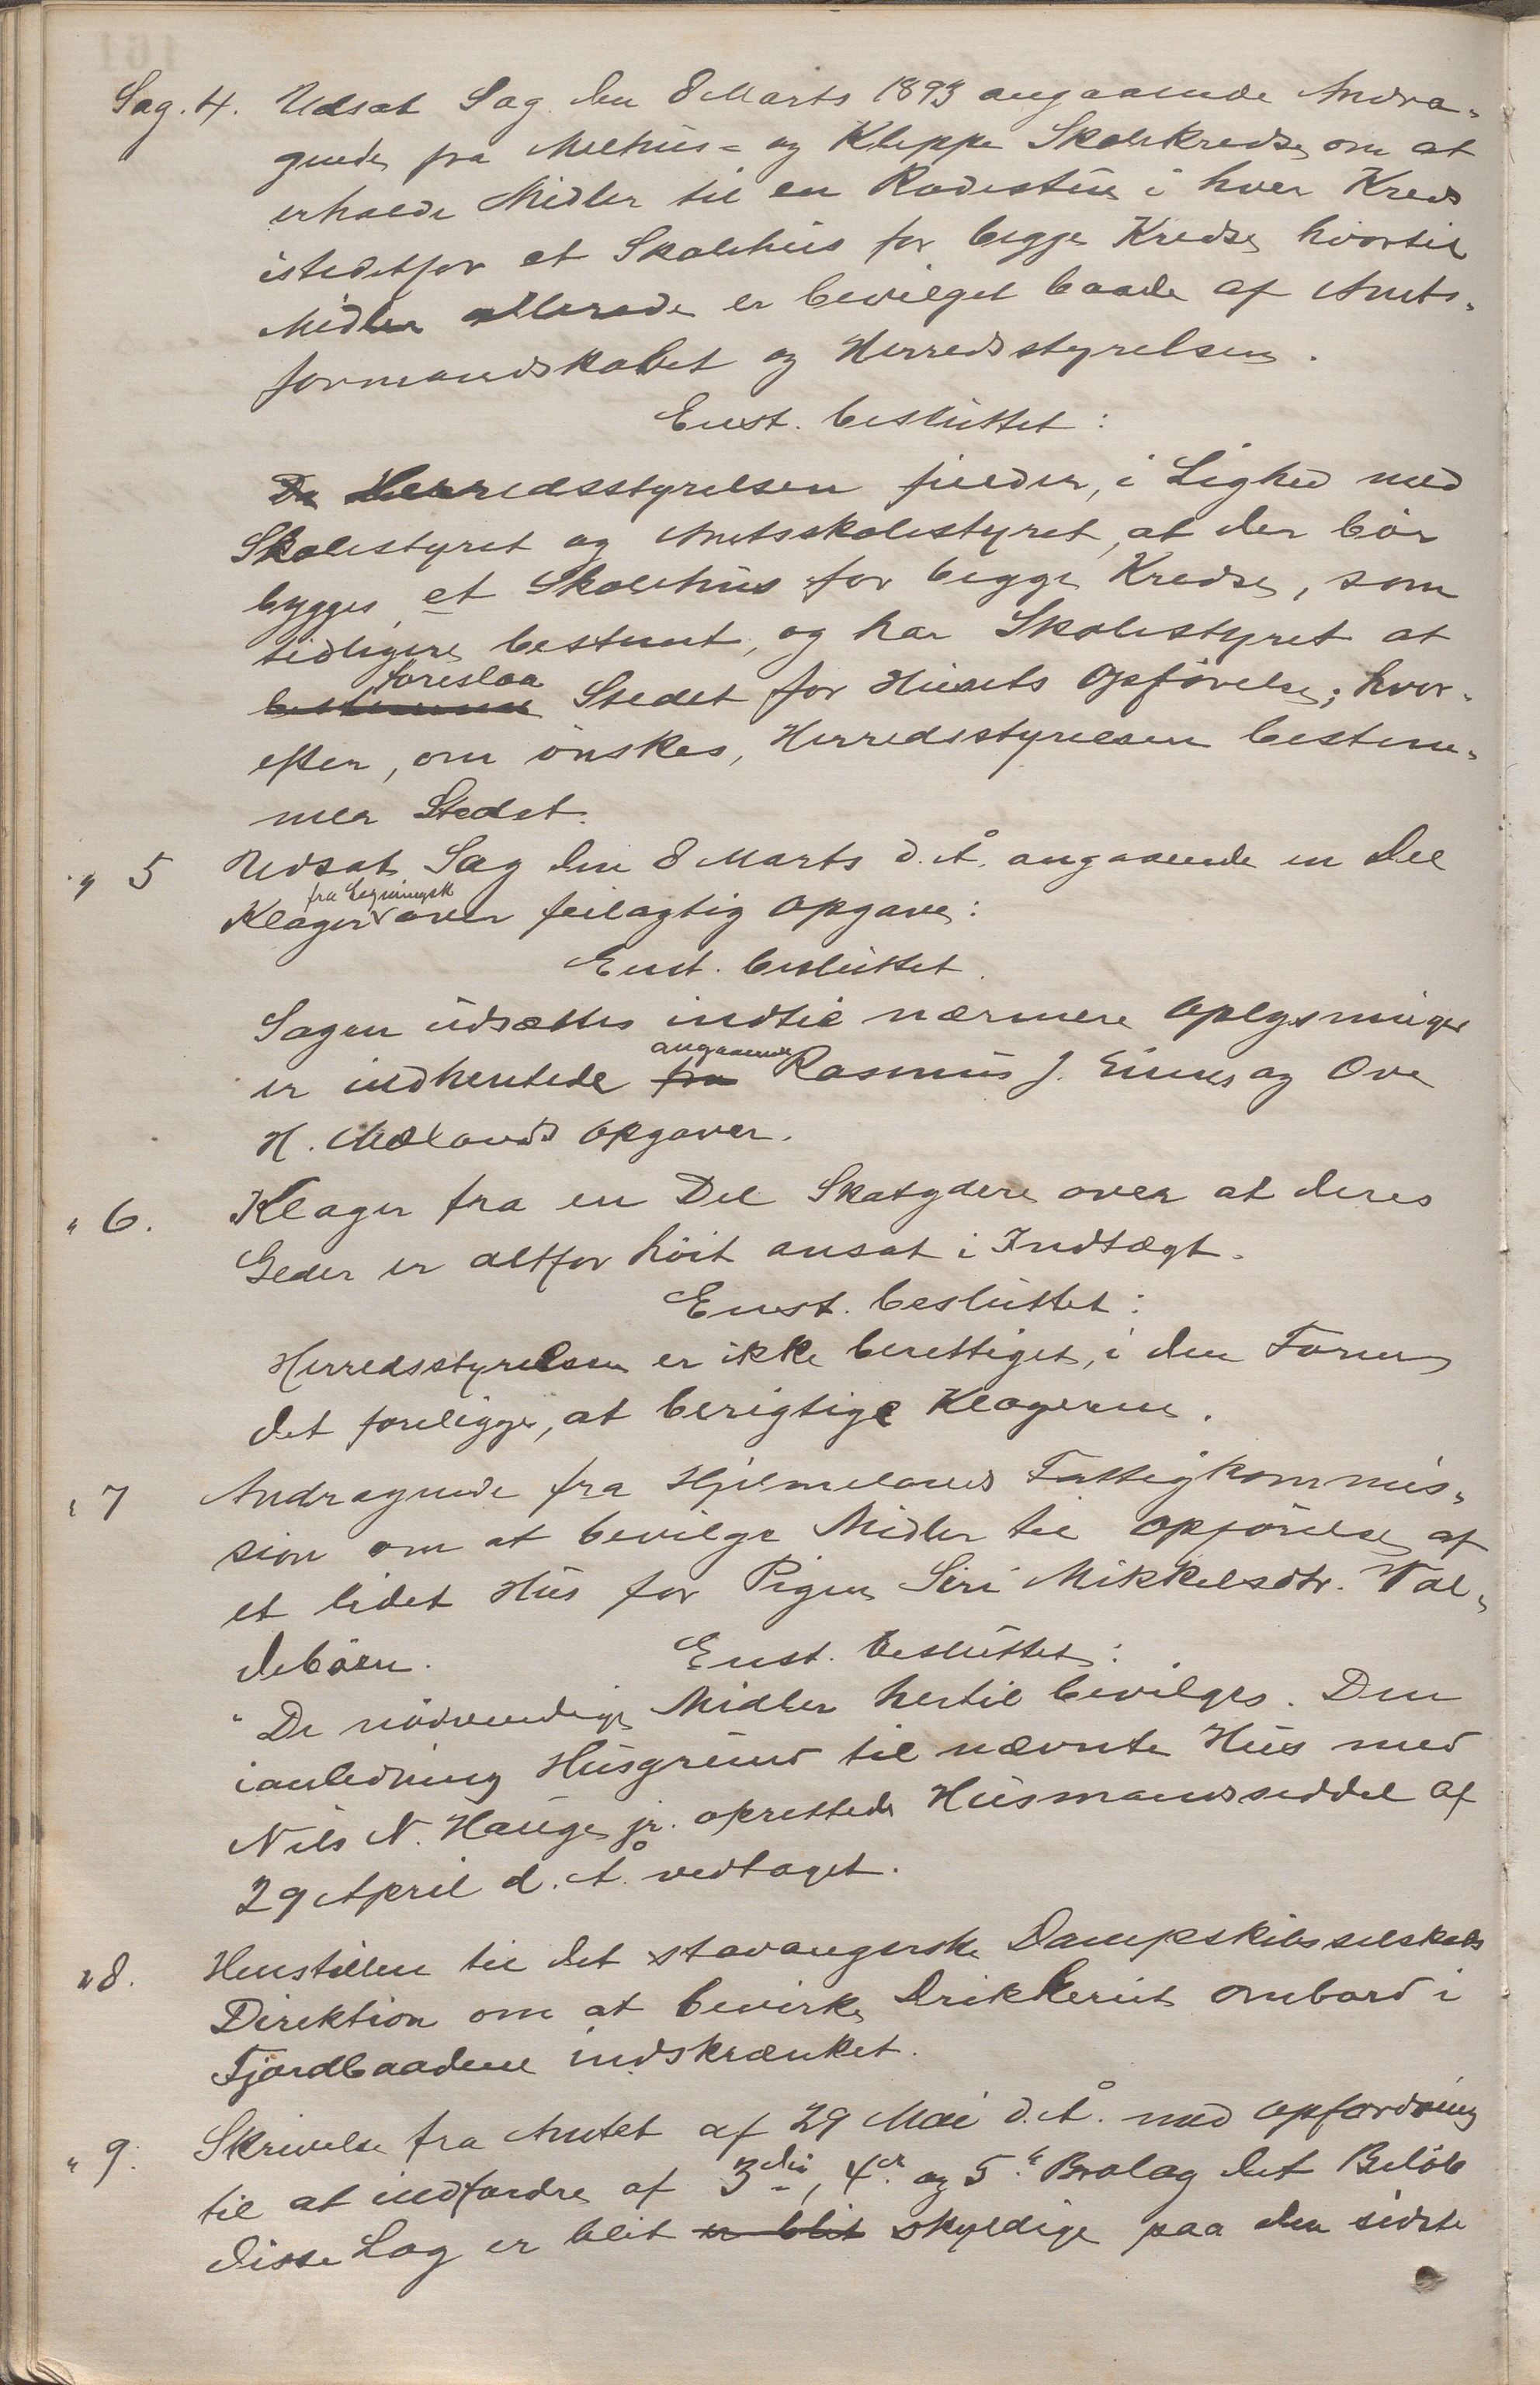 Sag. 4. Udsat Sag den 8 Marts 1893 angaaende Andra-
gende fra Mælhus- og Kleppe Skolekredse om at
erholde Midler til en Rodestue i hver Kreds
istedetfor et Skolehus for begge Kredse, hvortil
Midler allerede er bevilget baade af Amts-
formandskabet og Herredsstyrelsen.
Enst. besluttet:
De Herredsstyrelsen finder, i Lighed med
Skolestyret og Amtsskolestyret, at der bör
bygges et Skolehus for begge Kredse, som
tidligere bestemt, og har Skolestyret at
foreslaa
bestemme Stedet for Husets Opförelse; hvor-
efter, om önskes, Herredsstyrelsen bestem-
mer Stedet.
" 5 Udsat Sag den 8 Marts d. Å. angaaende en Del
fra Ligningsk
Klager over feilagtig Opgave:
Enst. besluttet.
Sagen udsættes indtil nærmere Oplysninger
angaaende
er indhentede fra Rasmus J. Eines og Ove
H. Mælands Opgaver.
" 6. Klager fra en Del Skatydere over at deres
Geder er altfor höit ansat i Indtægt.
Enst. besluttet:
Herredsstyrelsen er ikke berettiget, i den Form
det foreligger, at berigtige Klagerne.
" 7 Andragende fra Hjelmelands Fattigkommis-
sion om at bevilge Midler til Opförelse af
et lidet Hus for Pigen Siri Mikkelsdtr. Val-
deböen. Enst. besluttet:
"De nödvendige Midler hertil bevilges. Den
ianledning Husgrund til nævnte Hus med
Nils N. Hauge jr. oprettede Husmandsseddel af
29 April d. Å. vedtaget.
" 8. Henstillen til det stavangerske Dampskibsselskabs
Direktion om at bevirke Drikkeriet ombord i
Fjordbaadene indskrænket.
" 9. Skrivelse fra Amtet af 29 Mai d. Å. med Opfordring
til at indfordre af 3die, 4de og 5te Brolag det Belöb
disse Lag er blit er blit skyldige paa den sidste